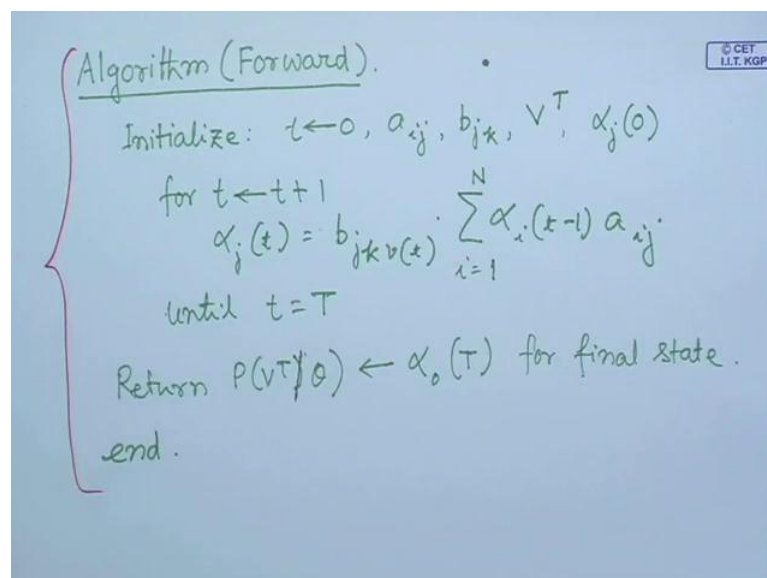 Algorithm (Forward).
© CET
I.I.T. KGP
Initialize: t ← 0, a_ij, b_jk, V^T, α_j(0)
for t ← t + 1
α_j(t) = b_jk v(t) ∑_{i=1}^{N} α_i(t-1) a_ij
until t = T
Return P(V^T | θ) ← α_0(T) for final state.
end.